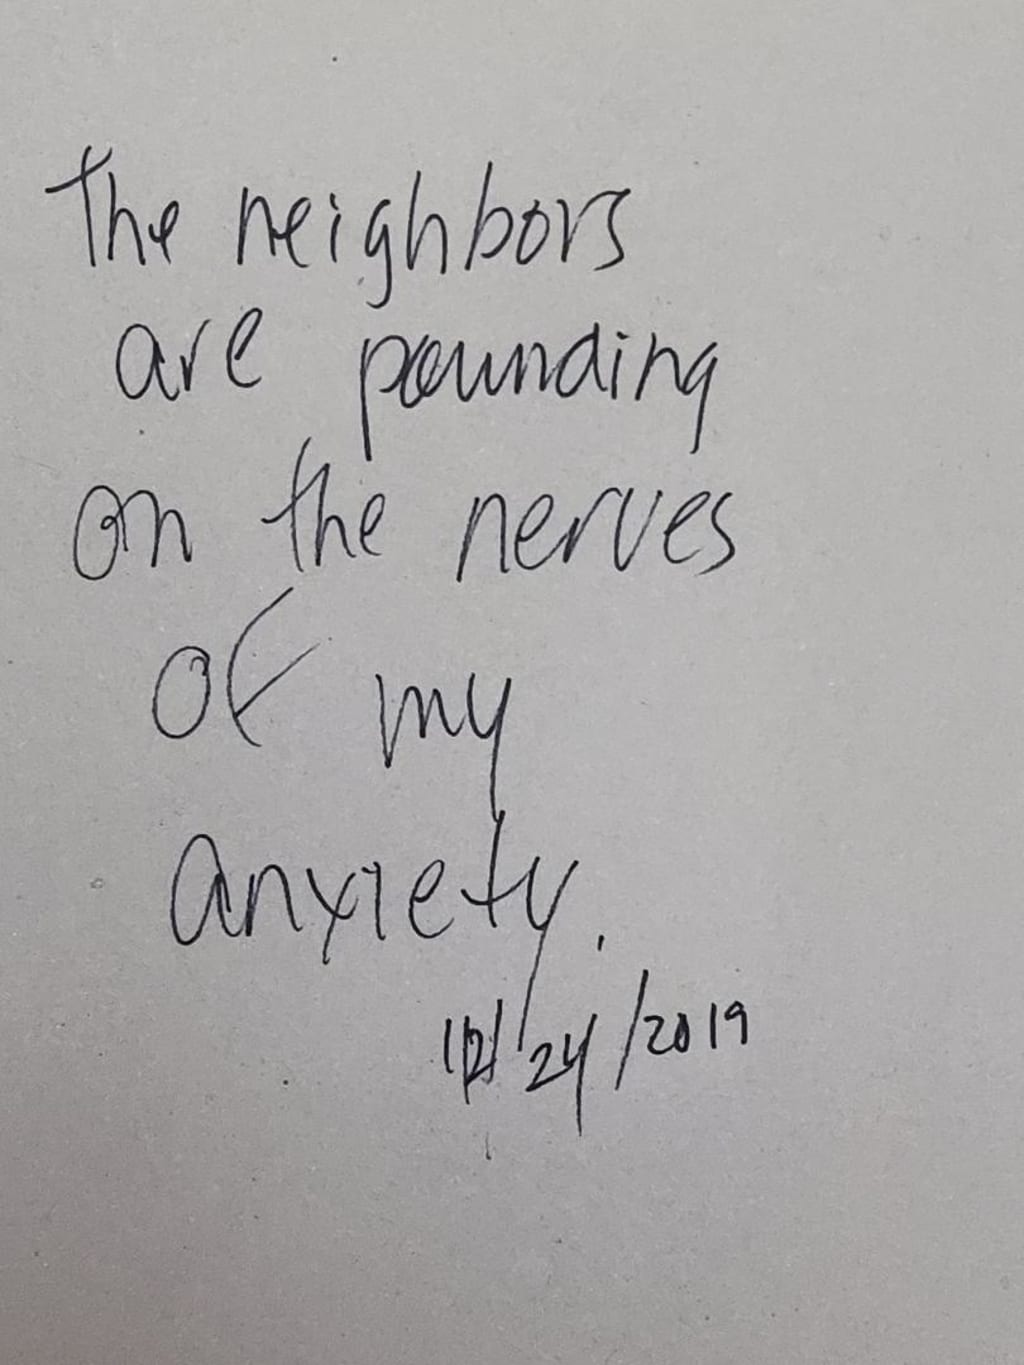 The neighbors
are pounding
on the nerves
of my
anxiety.
12/24/2019